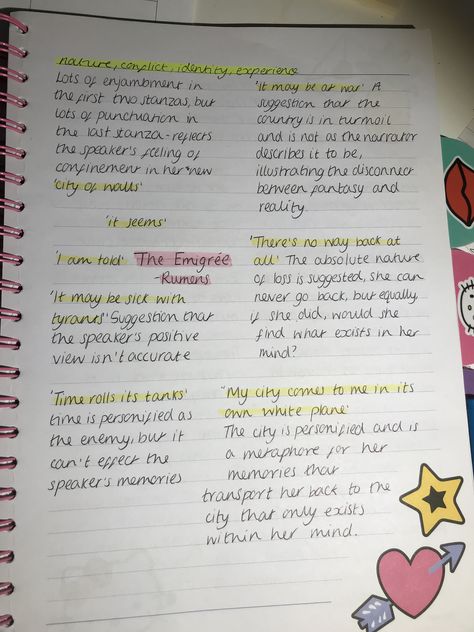 nature, conflict, identity, experience
Lots of enjambment in
the first two stanzas, but
lots of punctuation in
the last stanza - reflects
the speaker's feeling of
confinement in her new
'city of walls'
'it may be at war' A
suggestion that the
country is in turmoil
and is not as the narrator
describes it to be,
illustrating the disconnect
between fantasy and
reality.
'it seems'
'I am told'
The Emigrée
- Rumens
'It may be sick with
tyrants' Suggestion that
the speaker's positive
view isn't accurate
'There's no way back at
all' The absolute nature
of loss is suggested, she can
never go back, but equally,
if she did, would she
find what exists in her
mind?
'Time rolls its tanks'
time is personified as
the enemy, but it
can't effect the
speaker's memories
"My city comes to me in its
own white plane'
The city is personified and is
a metaphore for her
memories that
transport her back to the
city that only exists
within her mind.